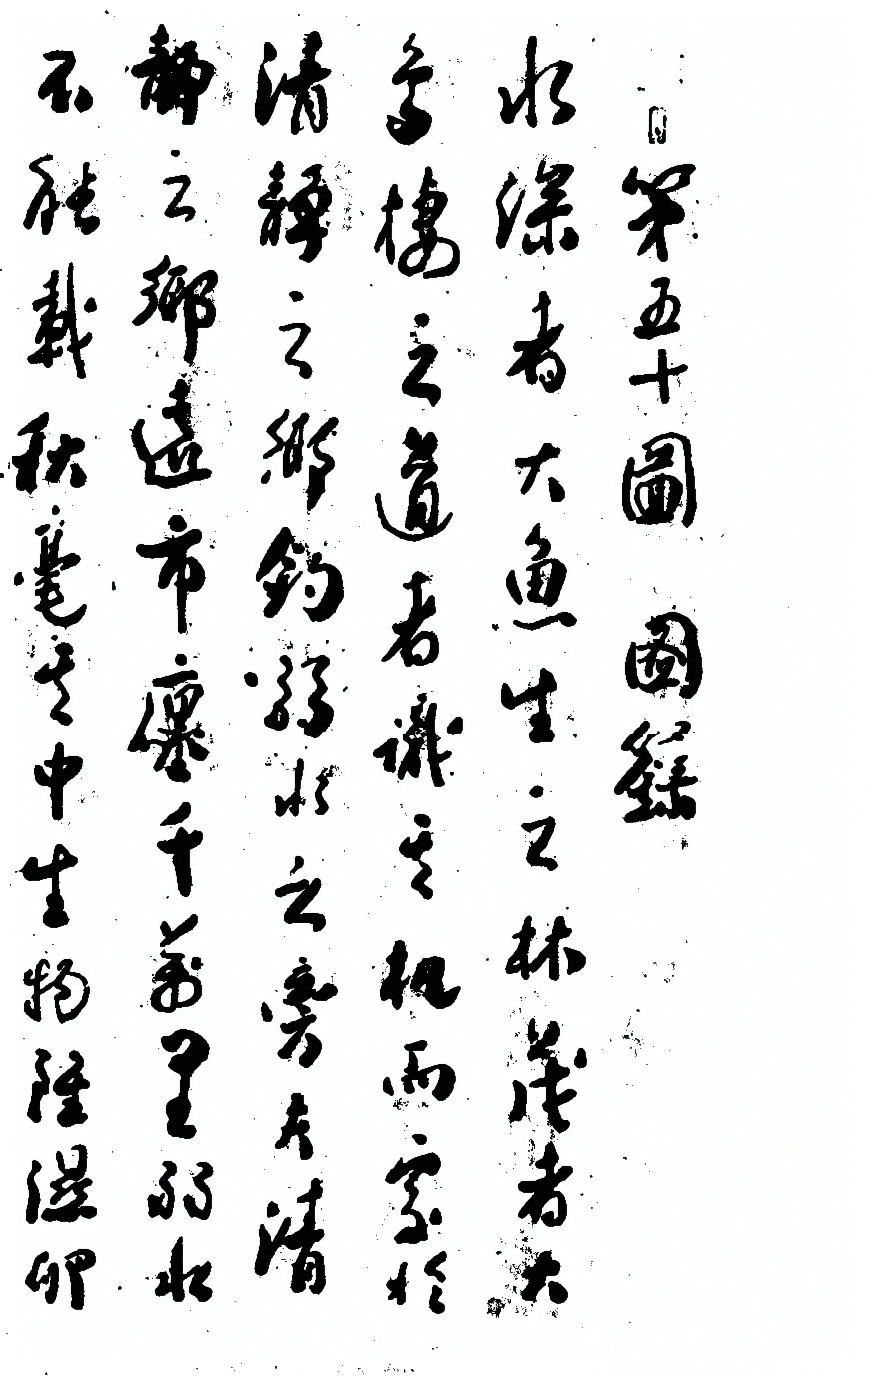 第五十圖 圖籍
水深者大魚生之林茂者大
鳥棲之道者識其機而家於
清靜之鄉釣弱於之旁夫清
靜之鄉遠市廛千萬里弱水
不能載秋毫其中生物陸濕卵